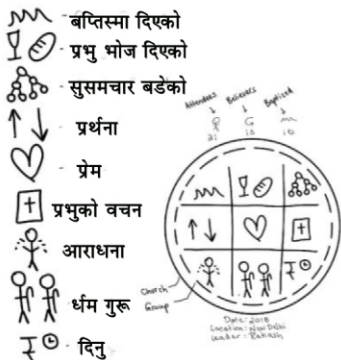 बप्तिस्मा दिएको
प्रभु भोज दिएको
सुसमचार बडेको
प्रर्थना
प्रेम
प्रभुको वचन
आराधना
र्धम गुरू
दिनु
Attenders
Believers
Baptized
21 15 10
Church
Group
Date: 2018
Location: New Delhi
Leader: Prakash